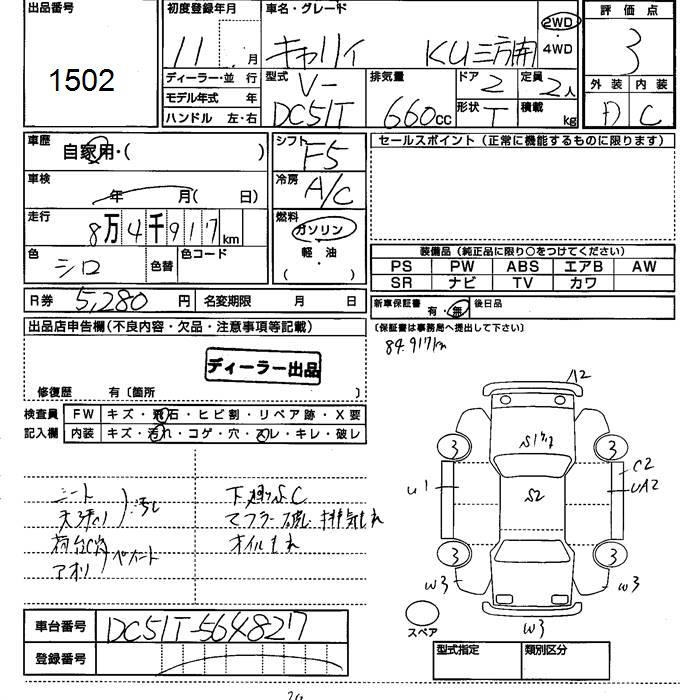 出品番号
1502
初度登録年月
11 月
車名・グレード
キャリイ KU三方開
2WD
4WD
評価点
3
外装 内装
D C
ディーラー・並行
モデル年式 年
ハンドル 左・右
型式 V-
DC51T
排気量
660cc
ドア 2
形状 T
定員 2人
積載 kg
車歴
自家用・( )
シフト
F5
車検
年 月( 日)
冷房
A/C
走行
8万4千917km
燃料
ガソリン
軽・油
( )
色
シロ
色替
色コード
セールスポイント(正常に機能するものに限ります)
装備品(純正品に限り○をつけてください)
PS PW ABS エアB AW
SR ナビ TV カワ
R券 5,280円
名変期限 月 日
新車保証書 有・無
後日品
(保証書は事務局へ提出して下さい)
84.917km
出品店申告欄(不良内容・欠品・注意事項等記載)
ディーラー出品
修復歴 有〔箇所 〕
検査員
記入欄
FW キズ・飛石・ヒビ割・リペア跡・X要
内装 キズ・汚れ・コゲ・穴・スレ・キレ・破レ
シート
天張り
荷台C
アオリ
ペイント
下廻りS,C
マフラー 排気もれ
オイルもれ
A2
S1
3
3
C2
U1
S2
UA2
3
3
W3
W3
W3
スペア
車台番号 DC51T-564827
登録番号
型式指定
類別区分